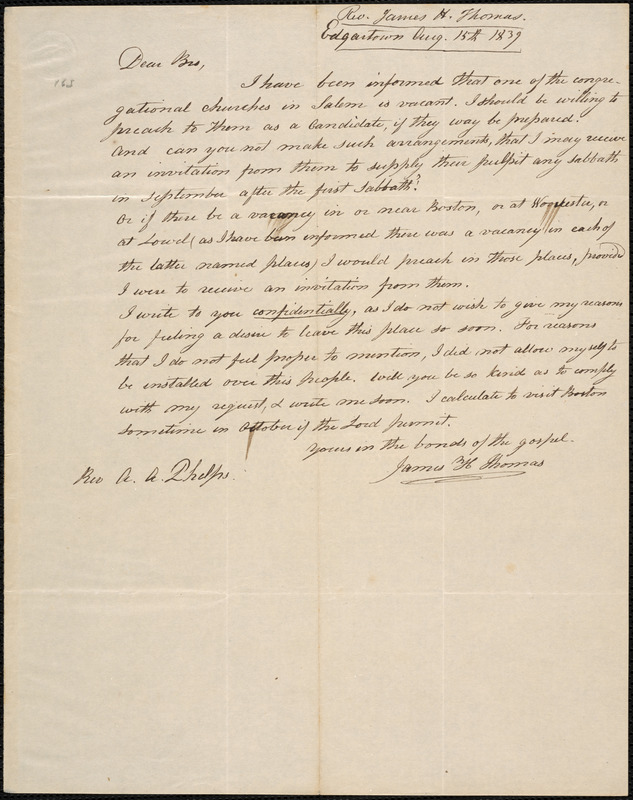 Rev. James H. Thomas.
Edgartown Aug. 15th 1839
Dear Bro,
I have been informed that one of the congre-
gational churches in Salem is vacant. I should be willing to
preach to them as a Candidate, if they way be prepared.
And can you not make such arrangements, that I may receive
an invitation from them to supply their pulpit any Sabbath
in September after the first Sabbath?
Or if there be a vacancy in or near Boston, or at Worcester, or
at Lowel (as I have been informed there was a vacancy in each of
the latter named places) I would preach in those places, provided
I were to receive an invitation from them.
I write to you confidentially, as I do not wish to give my reasons
for feeling a desire to leave this place so soon. For reasons
that I do not feel proper to mention, I did not allow myself to
be installed over this People. Will you be so kind as to comply
with my request, & write me soon. I calculate to visit Boston
sometime in October if the Lord permit.
Yours in the bonds of the gospel.
James H Thomas
Rev A. A. Phelps.